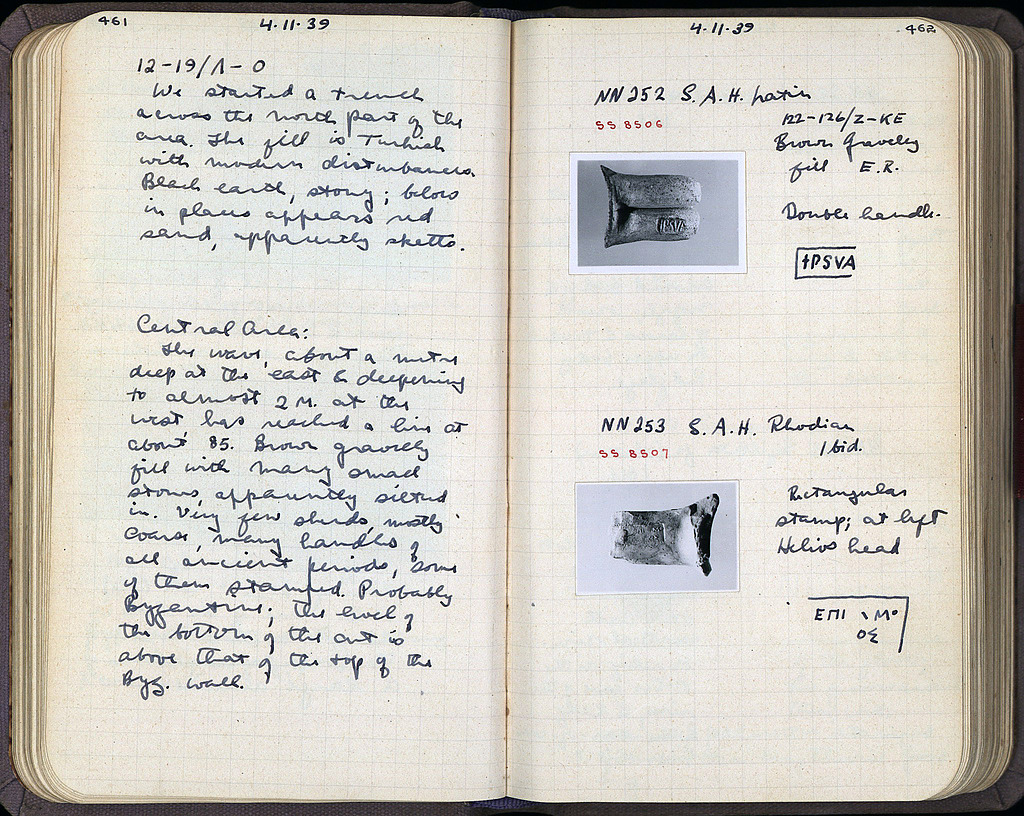 461
4·11·39
12-19/Λ-O
We started a trench
across the north part of the
area. The fill is Turkish
with modern disturbances.
Black earth, stony; below
in places appears red
sand, apparently sketto.
Central Area:
The wave, about a metre
deep at the east & deepening
to almost 2 M. at the
west, has reached a line at
about 85. Brown gravelly
fill with many small
stones, apparently silted
in. Very few sherds, mostly
coarse, many handles of
all ancient periods, some
of them stamped. Probably
Byzantine; the level of
the bottom of the cut is
above that of the top of the
Byz. wall.
4·11·39
462
NN 252 S.A.H. Latin
SS 8506
122-126/Z-KE
Brown Gravelly
fill E.R.
Double handle.
†PSVA
NN 253 S.A.H. Rhodian
SS 8507
Ibid.
Rectangular
stamp; at left
Helios head
ΕΠΙ